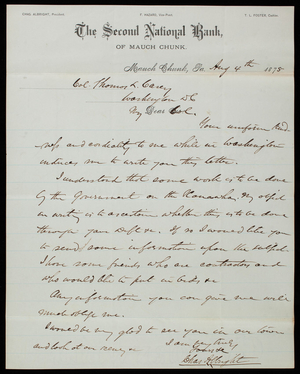 CHAS. ALBRIGHT, President.
T. L. FOSTER, Cashier
The Second National Bank,
OF MAUCH CHUNK.
Mauch Chunk, Pa. Aug 4th 1875
Col. Thomas L. Casey
Washington D.C
My Dear Col.
Your uniform kind-
ness and cordiality to me while in Washington
induces me to write you this letter.
I understand that some work is to be done
by the Government on the Kanawha, my object
in writing is to ascertain whether this is to be done
through your Dept. If so I would like you
to send some information upon the subject.
I have some friends who are contractors and
who would like to put in bids
Any information you can give me will
much oblige me.
I would be very glad to see you in our town
and look at our
I am very truly
Yours
Chas Albright